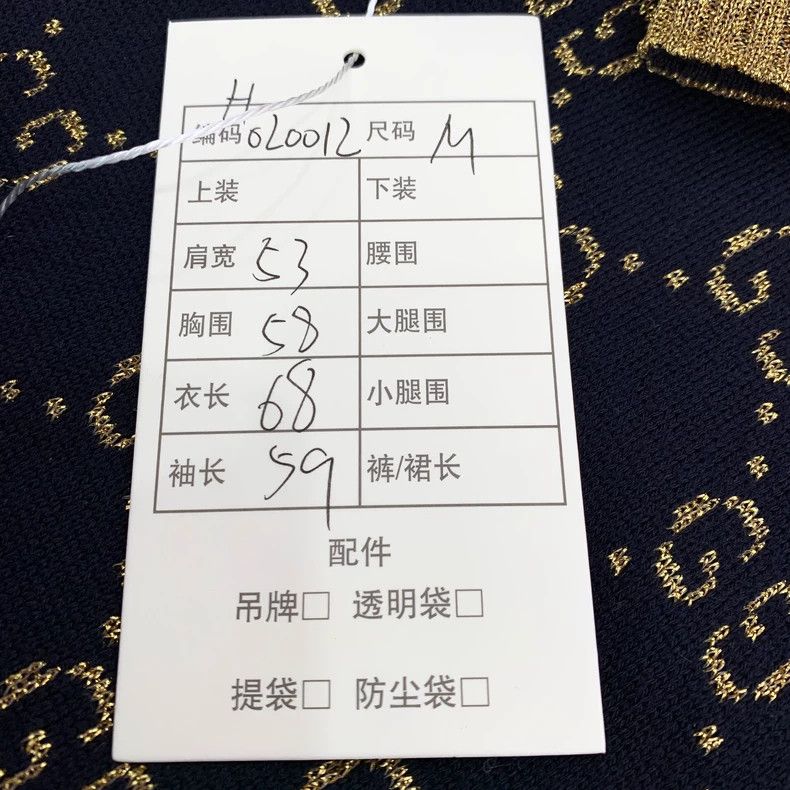 H
编码 020012 尺码 M
上装 下装
肩宽 53 腰围
胸围 58 大腿围
衣长 68 小腿围
袖长 59 裤/裙长
配件
吊牌□ 透明袋□
提袋□ 防尘袋□